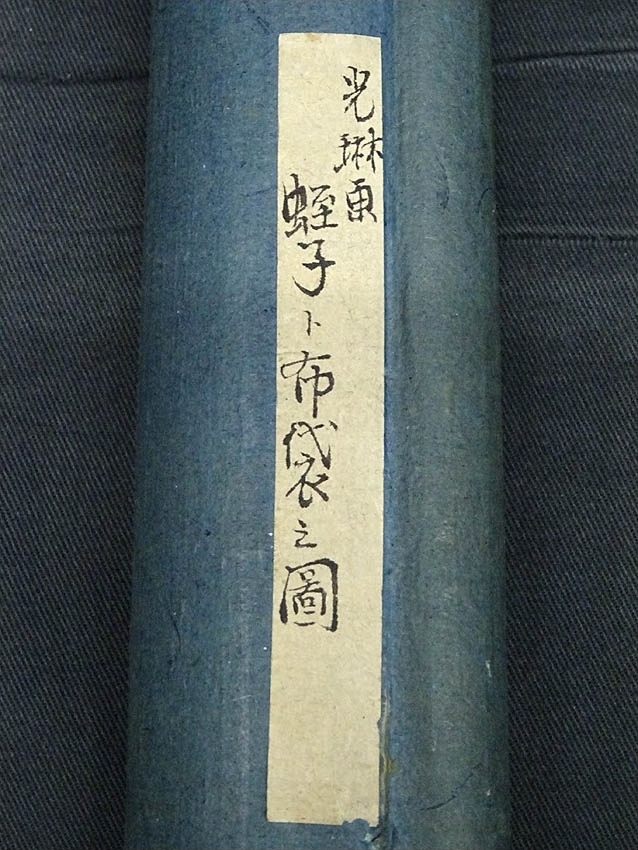 光琳画
蛭子ト布袋之圖